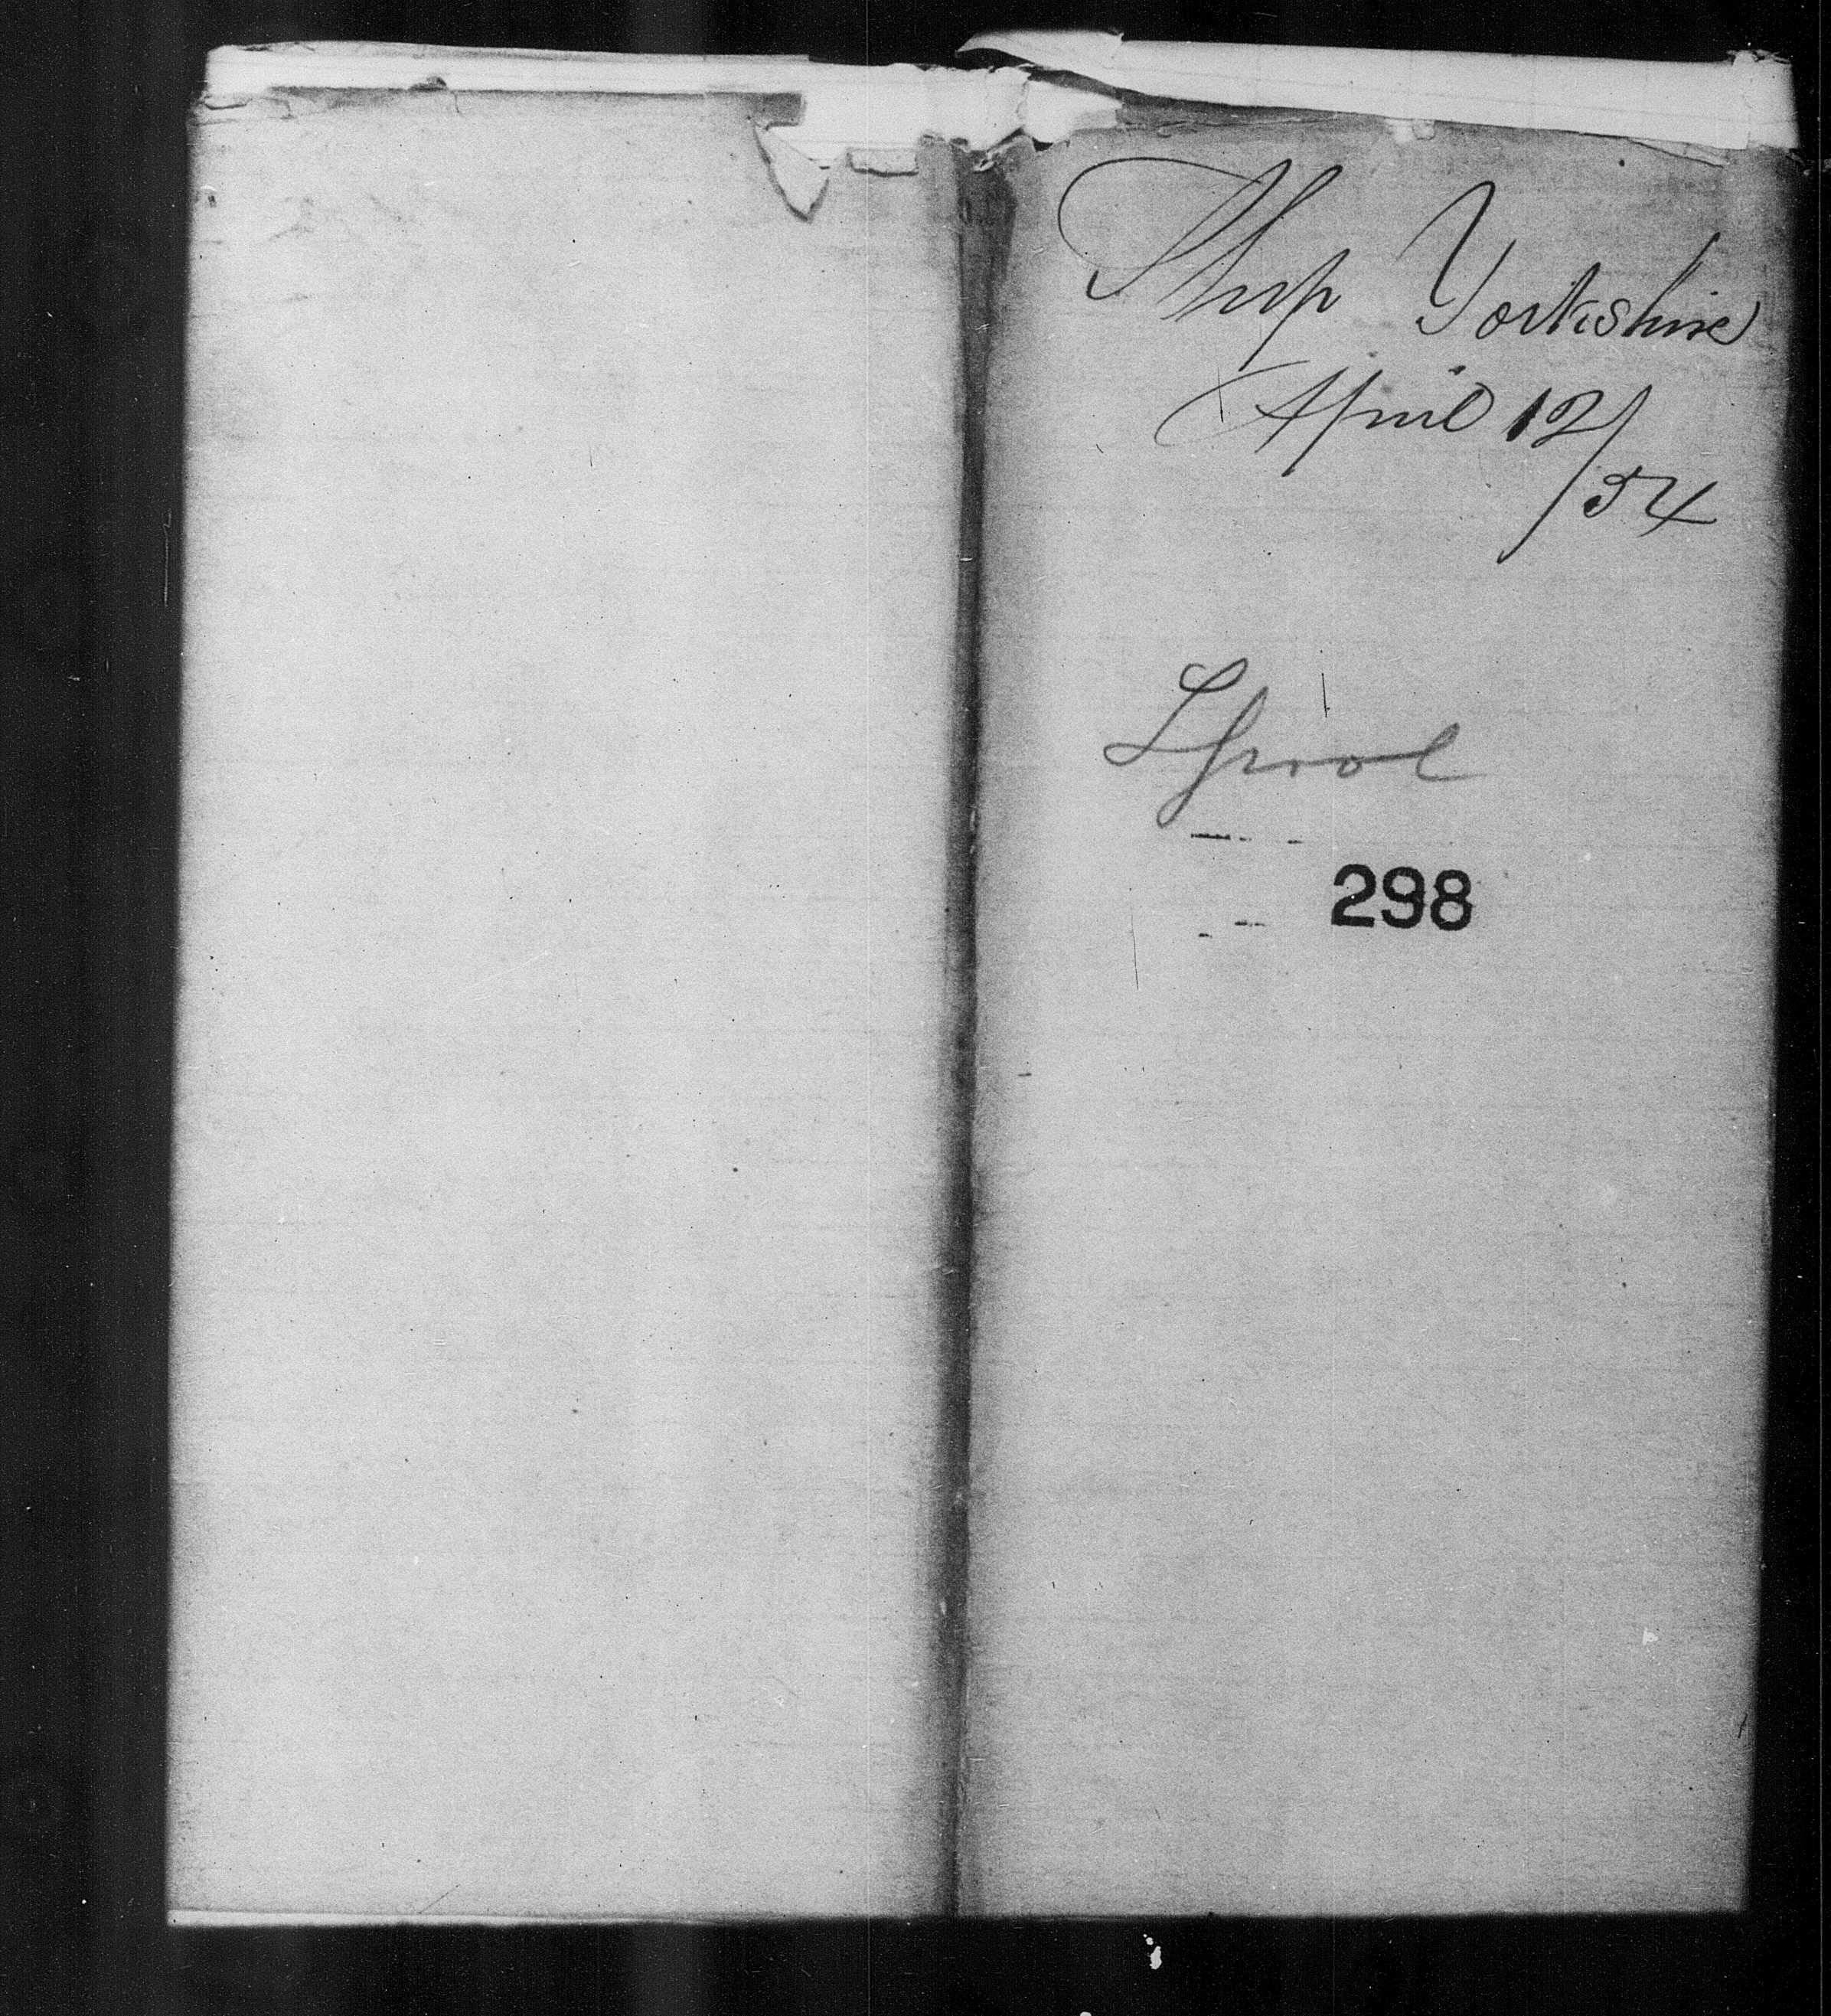 Ship Yorkshire
April 12/
/54
Lpool
298